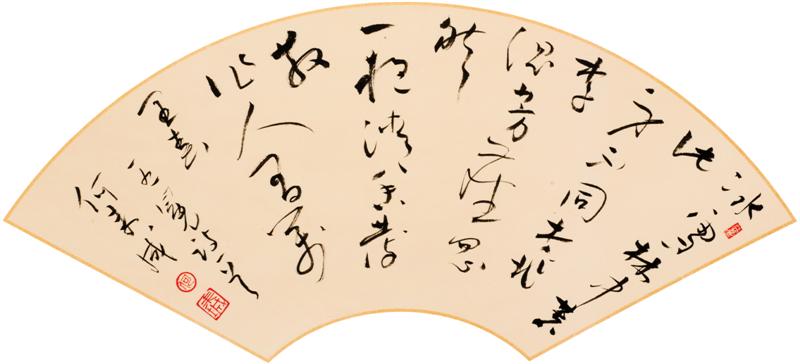 冰雪林中著
此
身不同桃
李
混芳尘忽
然
一夜清香发
散
作人间万
里春
王冕诗
何